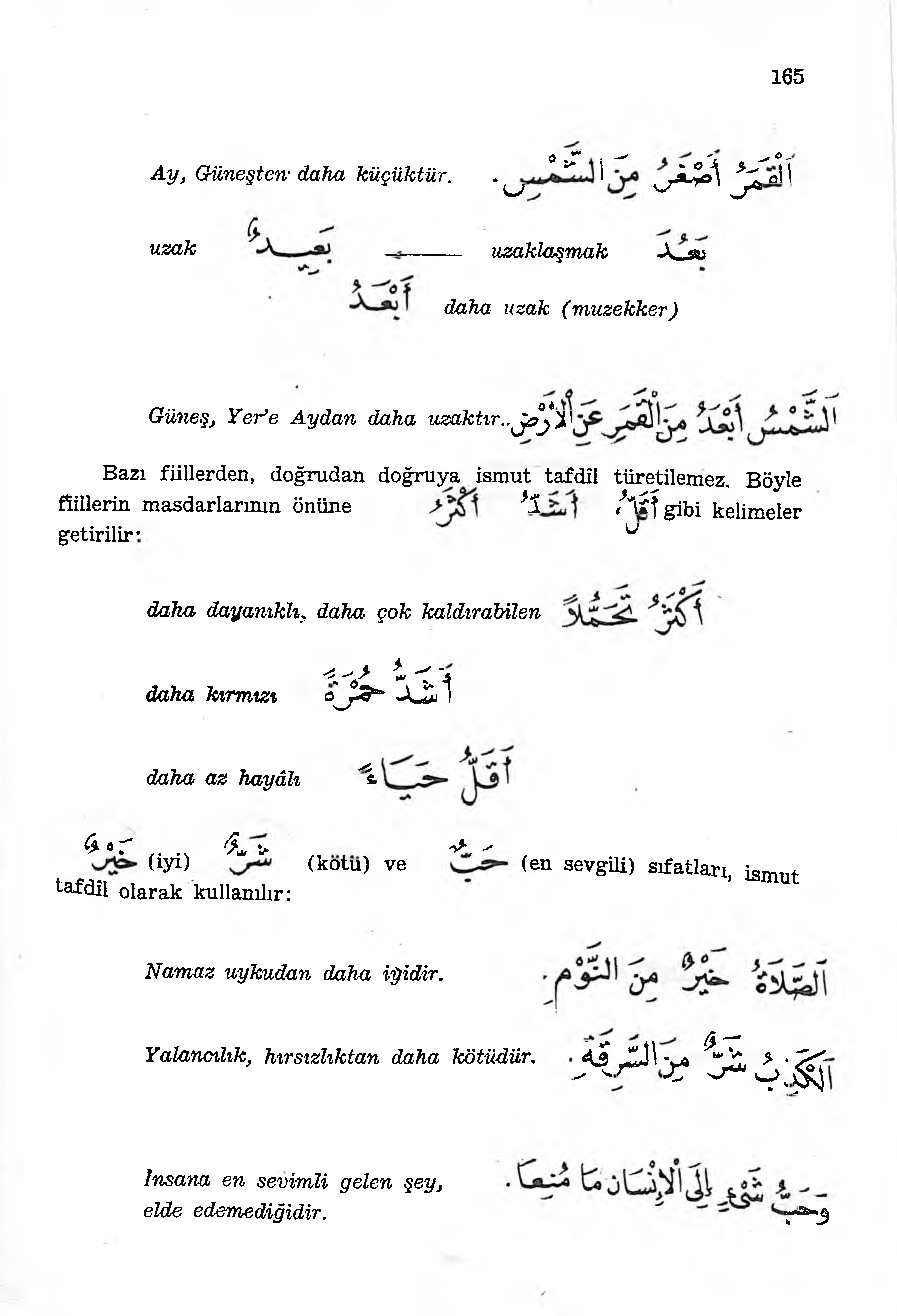 165
Ay, Güneşten daha küçüktür. اَلْقَمَرُ أَصْغَرُ مِنَ الشَّمْسِ.
uzak بَعِيدٌ ← uzaklaşmak بَعُدَ
أَبْعَدُ daha uzak (muzekker)
Güneş, Yer'e Aydan daha uzaktır.. اَلشَّمْسُ أَبْعَدُ مِنَ الْقَمَرِ عَنِ الْأَرْضِ
Bazı fiillerden, doğrudan doğruya ismut tafdîl türetilemez. Böyle
fiillerin masdarlarının önüne أَكْثَرُ أَشَدُّ أَقَلُّ، gibi kelimeler
getirilir:
daha dayanıklı, daha çok kaldırabilen أَكْثَرُ تَحَمُّلاً
daha kırmızı أَشَدُّ حُمْرَةً
daha az hayâlı أَقَلُّ حَيَاءً
خَيْرٌ (iyi) شَرٌّ (kötü) ve حَبٌّ (en sevgili) sıfatları, ismut
tafdîl olarak kullanılır:
Namaz uykudan daha iyidir. اَلصَّلَاةُ خَيْرٌ مِنَ النَّوْمِ.
Yalancılık, hırsızlıktan daha kötüdür. اَلْكَذِبُ شَرٌّ مِنَ السَّرِقَةِ.
İnsana en sevimli gelen şey, وَحَبُّ شَيْءٍ إِلَى الْإِنْسَانِ مَا مُنِعَا.
elde edemediğidir.